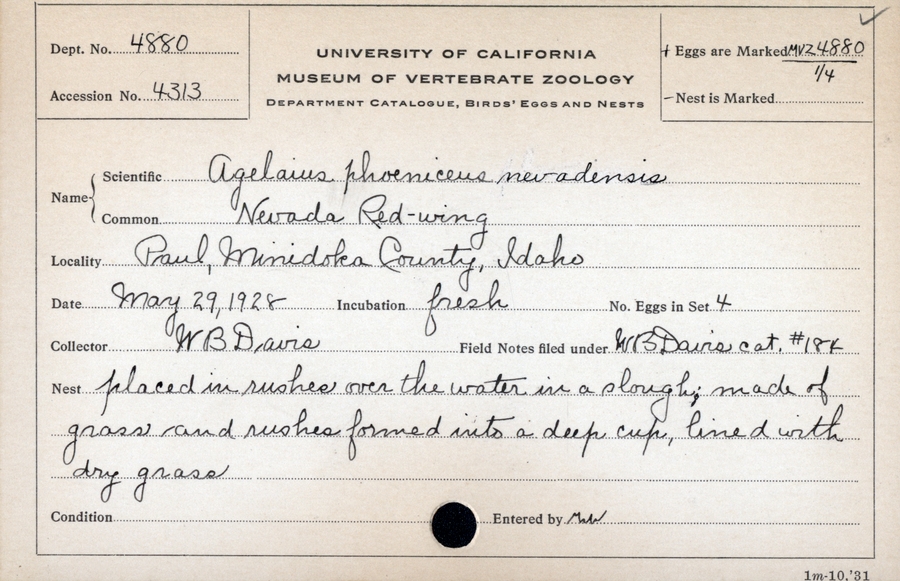 Dept. No. 4880
Accession No. 4313
UNIVERSITY OF CALIFORNIA
MUSEUM OF VERTEBRATE ZOOLOGY
DEPARTMENT CATALOGUE, BIRDS' EGGS AND NESTS
+ Eggs are Marked MVZ 4880
1/4
- Nest is Marked
Name { Scientific Agelaius phoeniceus nevadensis
Common Nevada Red-wing
Locality Paul, Minidoka County, Idaho
Date May 29, 1928 Incubation fresh No. Eggs in Set 4
Collector W B Davis Field Notes filed under W B Davis cat. #184
Nest placed in rushes over the water in a slough; made of
grass and rushes formed into a deep cup, lined with
dry grass
Condition Entered by
1m-10,'31